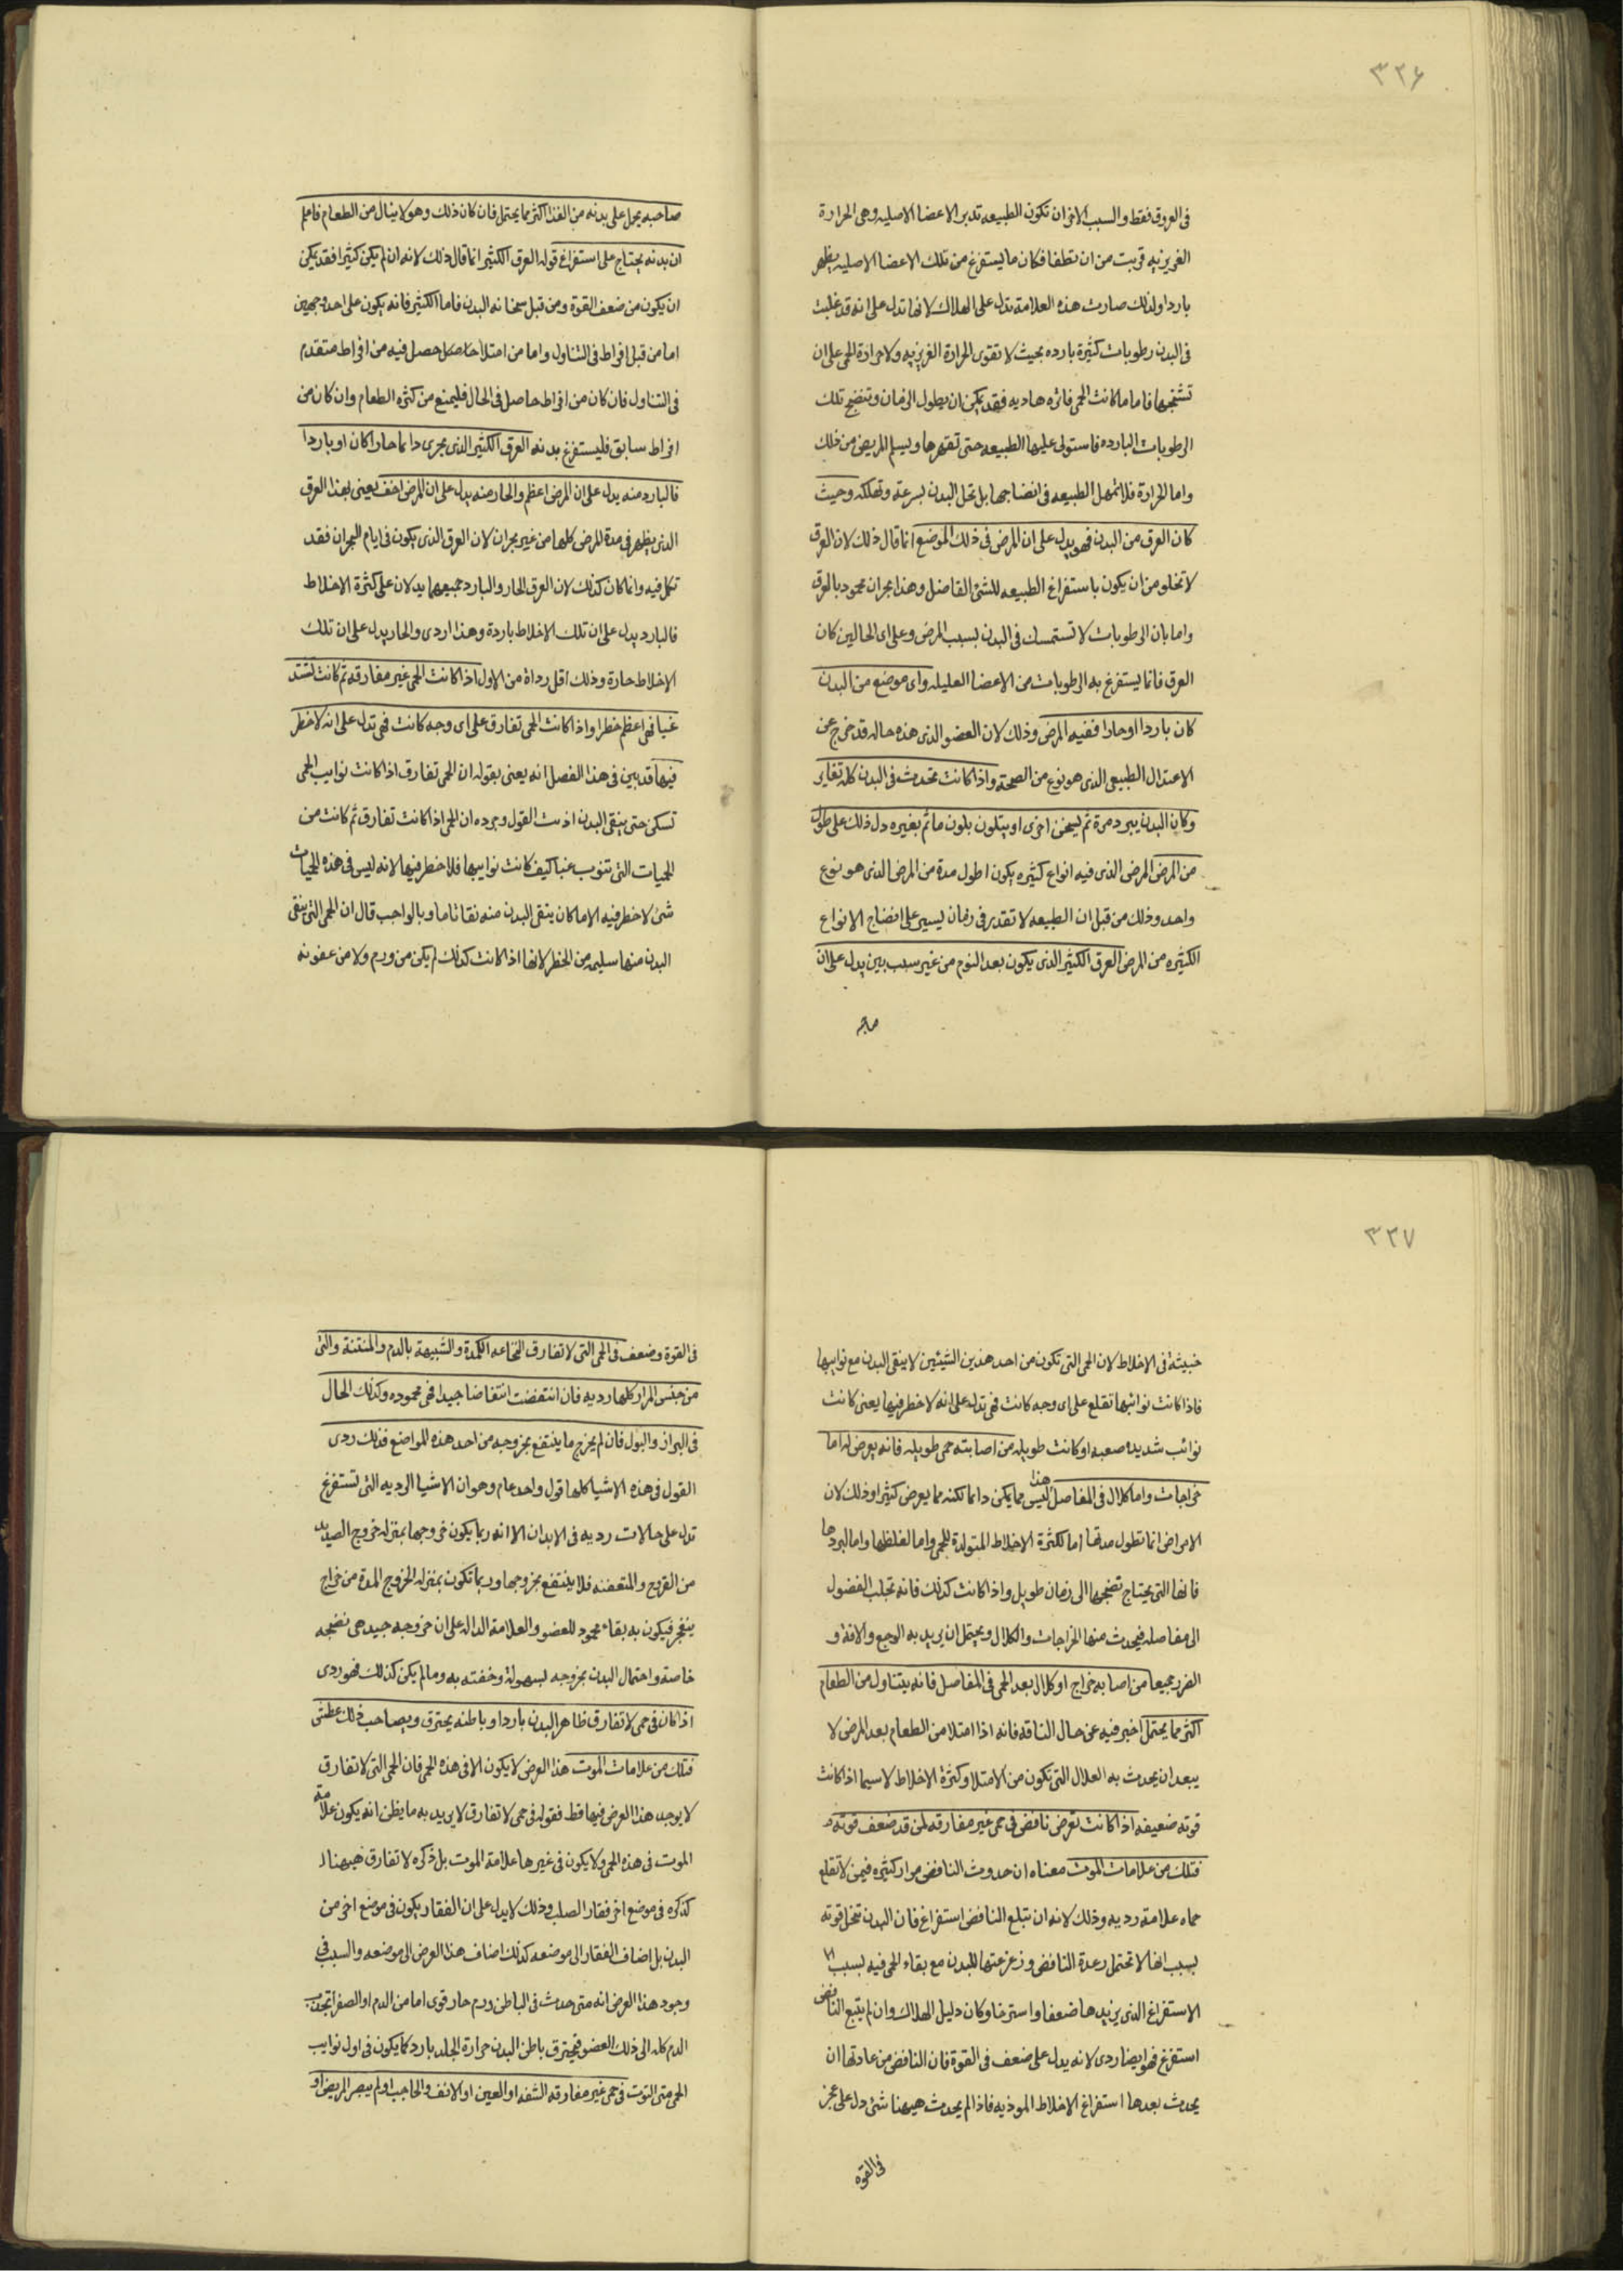 ٣٢۶
فى العروق فقط والسبب الاخر ان تكون الطبيعه تدبر الاعضا الاصليه وهى الحرارة
الغريزيه قربت من ان تطفا فكان ما يستفرغ من تلك الاعضا الاصليه يظهر
باردا ولذلك صارت هذه العلامة تدل على الهلاك لانها تدل على انه قد غلبت
فى البدن رطوبات كثيرة بارده بحيث لا تقوى الحرارة الغريزيه ولا حرارة الحمى على ان
تسخنها فاما ما كانت الحمى فاتره هاديه فقد يمكن ان يطول الزمان وتنضج تلك
الرطوبات البارده فاستولى عليها الطبيعه حتى تقهرها ويسلم المريض من ذلك
واما الحرارة فلا تمهل الطبيعه فى انضاجها بل تحل البدن بسرعة وتهلكه وحيث
كان العرق من البدن فهو يدل على ان المرض فى ذلك الموضع انما قال ذلك لان العرق
لا تخلو من ان يكون باستفراغ الطبيعه للشئ الفاضل وهذا بحران محمود بالعرق
واما بان الرطوبات لا تستمسك فى البدن بسبب المرض وعلى اى الحالين كان
العرق فانما يستفرغ به الرطوبات من الاعضا العليله واى موضع من البدن
كان باردا او حارا ففيه المرض وذلك لان العضو الذى هذه حاله قد خرج عن
الاعتدال الطبيعى الذى هو نوع من الصحة واذا كانت تحدث فى البدن كله تغاير
وكان البدن يبرد مرة ثم يسخن اخرى او يتلون بلون ما ثم بغيره دل ذلك على طول
من المرض المرض الذى فيه انواع كثيره يكون اطول مدة من المرض الذى هو نوع
واحد وذلك من قبل ان الطبيعه لا تقدر فى زمان يسير على انضاج الانواع
الكثيره من المرض العرق الكثير الذى يكون بعد النوم من غير سبب بين يدل على ان
صاحبه
صاحبه يحمل على بدنه من الغذا اكثر مما يحتمل فان كان ذلك وهو لا ينال من الطعام فاعلم
ان بدنه يحتاج على استفراغ قوله العرق الكثير انما قال ذلك لانه ان لم يكن كثيرا فقد يمكن
ان يكون من ضعف القوة ومن قبل سخانه البدن فاما الكثير فانه يكون على احد وجهين
اما من قبل افراط فى التناول واما من امتلا حاصل حصل فيه من افراط متقدم
فى التناول فان كان من افراط حاصل فى الحال فليمنع من كثره الطعام وان كان من
افراط سابق فليستفرغ بدنه العرق الكثير الذى يجرى دائما حارا كان او باردا
فالبارد منه يدل على ان المرض اعظم والحار منه يدل على ان المرض اخف يعنى بهذا العرق
الذى يظهر فى مدة المرض كلها من غير بحران لان العرق الذى يكون فى ايام البحران فقد
تكلم فيه وانما كان كذلك لان العرق الحار والبارد جميعهما يدلان على كثرة الاخلاط
فالبارد يدل على ان تلك الاخلاط باردة وهذا اردى والحار يدل على ان تلك
الاخلاط حارة وذلك اقل رداة من الاول اذا كانت الحمى غير مفارقه ثم كانت تشتد
غبا فهى اعظم خطرا واذا كانت الحمى تفارق على اى وجه كانت فهى تدل على انه لا خطر
فيها قد بين فى هذا الفصل انه يعنى بقوله ان الحمى تفارق اذا كانت نوايب الحمى
تسكن حتى ينقى البدن القول وجرده ان الحمى اذا كانت تفارق ثم كانت من
الحميات التى تنوب غبا كيف كانت نوايبها فلا خطر فيها لانه ليس فى هذه الحميات
شئ لا خطر فيه الا ما كان ينقى البدن منه نقا تاما وبالواجب قال ان الحمى التى ينقى
البدن منها سليمه من الخطر لانها اذا كانت كذلك لم يكن من ورم ولا من عفونه
٣٢٧
خبيثة فى الاخلاط لان الحمى التى تكون من احد هذين الشيئين لا ينقى البدن مع نوايبها
فاذا كانت نوائبها تقلع على اى وجه كانت فهى تدل على انه لا خطر فيها يعنى كانت
نوائب شديده صعبه او كانت طويله من اصابته حمى طويله فانه يعرض له اما
خراجات واما كلال فى المفاصل هذا ليس مما يمكن دائما لكنه مما يعرض كثيرا وذلك لان
الامراض انما تطول مدتها اما لكثرة الاخلاط المتولدة للحمى واما لغلظها واما لبردها
فانها التى يحتاج نضجها الى زمان طويل واذا كانت كذلك فانه تجلب الفضول
الى مفاصله فيحدث منها الخراجات والكلال ويحتمل ان يريد به الوجع والافة و
الضرر جميعا من اصابه خراج او كلال بعد الحمى فى المفاصل فانه يتناول من الطعام
اكثر مما يحتمل اخبر فيه عن حال الناقه فانه اذا امتلا من الطعام بعد المرض لا
يبعد ان يحدث به العلال التى تكون من الامتلا وكثرة الاخلاط لاسيما اذا كانت
قوته ضعيفه اذا كانت تعرض نافض فى حمى غير مفارقه لمن قد ضعف قوته
فتلك من علامات الموت معناه ان حدوث النافض مرار كثيره فيمن لا تقلع
حماه علامة رديه وذلك لانه ان تبلع النافض استفراغ فان البدن تنحل قوته
بسبب انها لا تحتمل رعدة النافض وزعزعتها للبدن مع بقاء الحمى فيه بسبب
الاستفراغ الذى يزيدها ضعفا واسترخا وكان دليل الهلاك وان لم يتبع النافض
استفرغ فهو ايضا ردى لانه يدل على ضعف فى القوة فان النافض من عادتها ان
يحدث بعدها استفراغ الاخلاط الموذيه فاذا لم يحدث هيهنا شئ دل على عجز
فى القوه
فى القوة وضعف فى الحمى التى لا تفارق النخاعه الكمدة والشبيهة بالدم والمنتنة والتى
من جنس المرار كلها رديه فان انتفضت انتفاضا جيدا فهى محموده وكذلك الحال
فى البراز والبول فان لم يخرج ما ينتفع بخروجه من احد هذه المواضع فذلك ردى
القول فى هذه الاشيا كلها قول واحد عام وهو ان الاشيا الرديه التى تستفرغ
تدل على حالات رديه فى الابدان الا انه ربما يكون خروجها بمنزله خروج الصديد
من القروح والمتعفنه فلا ينتفع بخروجها وربما تكون بمنزله الخروج المدة من خراج
ينفجر فيكون به بقاء محمود للعضو والعلامة الداله على ان خروجه جيد هى نضجه
خاصة واحتمال البدن بخروجه بسهولة وخفته به وما لم يكن كذلك فهو ردى
اذا كان فى حمى لا تفارق ظاهر البدن باردا وباطنه يحترق وبصاحب ذلك عطش
فتلك من علامات الموت هذا العرض لا يكون الا فى هذه الحمى فان الحمى التى لا تفارق
لا يوجد هذا العرض فيها قط فقوله فى حمى لا تفارق لا يريد به ما يظن انه يكون علامة
الموت فى هذه الحمى ولا يكون فى غيرها علامة الموت بل ذكره لا تفارق هيهنا
كذكره فى موضع اخر فقار الصلب وذلك لا يدل على ان الفقار يكون فى موضع اخر من
البدن بل اضاف الفقار الى موضعه كذلك اضاف هذا العرض الى موضعه والسبب فى
وجود هذا العرض انه متى حدث فى الباطن ورم حار قوى اما من الدم او الصفرا تجذب
الدم كله الى ذلك العضو فيحترق باطن البدن حرارة الجلد بارد كما يكون فى اول نوايب
الحمى متى التوت فى حمى غير مفارقه الشفه او العين او الانف والحاجب او لم يبصر المريض او